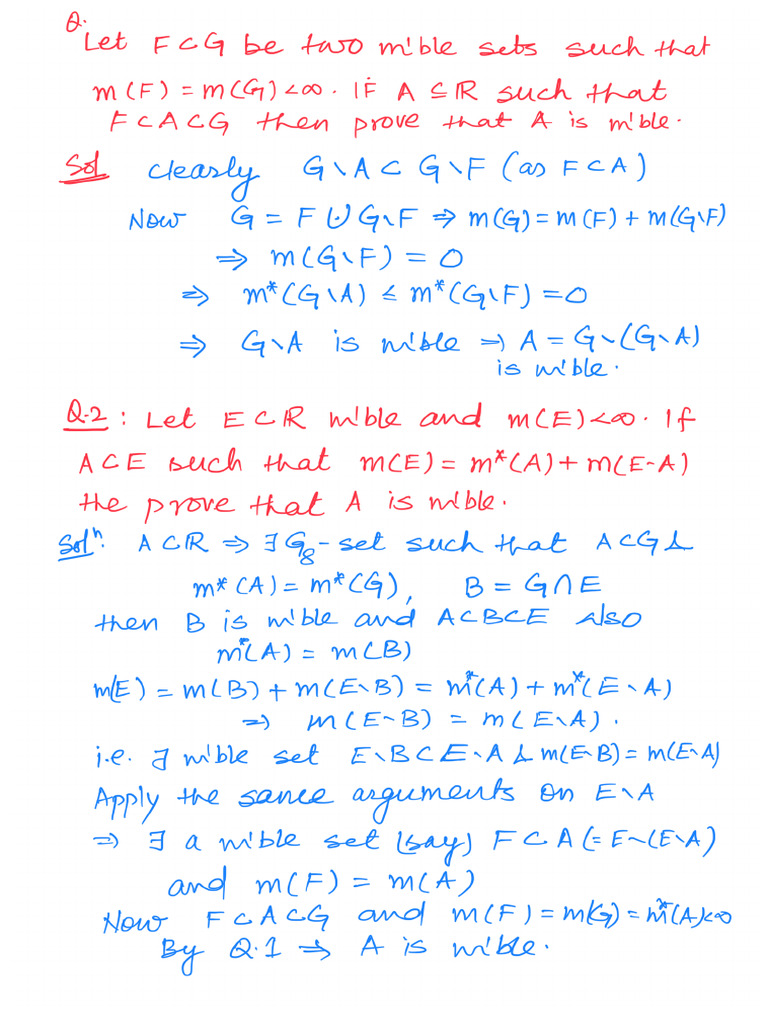 Q.
Let F ⊂ G be two m'ble sets such that
m(F) = m(G) < ∞. If A ⊆ ℝ such that
F ⊂ A ⊂ G then prove that A is m'ble.
Sol Clearly G∖A ⊂ G∖F (as F ⊂ A)
Now G = F ∪ G∖F ⇒ m(G) = m(F) + m(G∖F)
⇒ m(G∖F) = 0
⇒ m*(G∖A) ≤ m*(G∖F) = 0
⇒ G∖A is m'ble ⇒ A = G∖(G∖A)
is m'ble.
Q.2 : Let E ⊂ ℝ m'ble and m(E) < ∞. If
A ⊂ E such that m(E) = m*(A) + m(E∖A)
the prove that A is m'ble.
Solⁿ: A ⊂ ℝ ⇒ ∃ Gδ-set such that A ⊂ G &
m*(A) = m*(G), B = G ∩ E
then B is m'ble and A ⊂ B ⊂ E Also
m*(A) = m(B)
m(E) = m(B) + m(E∖B) = m*(A) + m*(E∖A)
⇒ m(E∖B) = m(E∖A).
i.e. ∃ m'ble set E∖B ⊂ E∖A & m(E∖B) = m(E∖A)
Apply the same arguments on E∖A
⇒ ∃ a m'ble set (say) F ⊂ A (= E∖(E∖A)
and m(F) = m(A)
Now F ⊂ A ⊂ G and m(F) = m(G) = m*(A) < ∞
By Q.1 ⇒ A is m'ble.